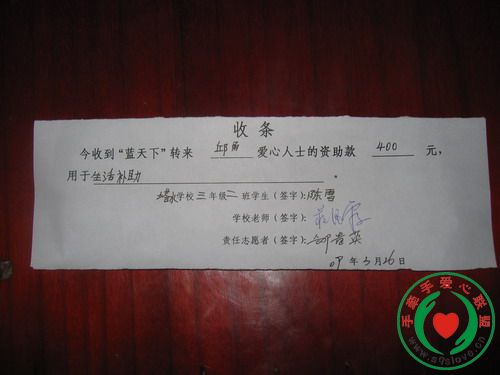 收条
今收到“蓝天下”转来 邱勇 爱心人士的资助款 400 元，
用于生活补助。
学校三年级二班学生（签字）：陈雪
学校老师（签字）：
责任志愿者（签字）：
09年3月26日
手牵手爱心联盟
www.sqslove.cn